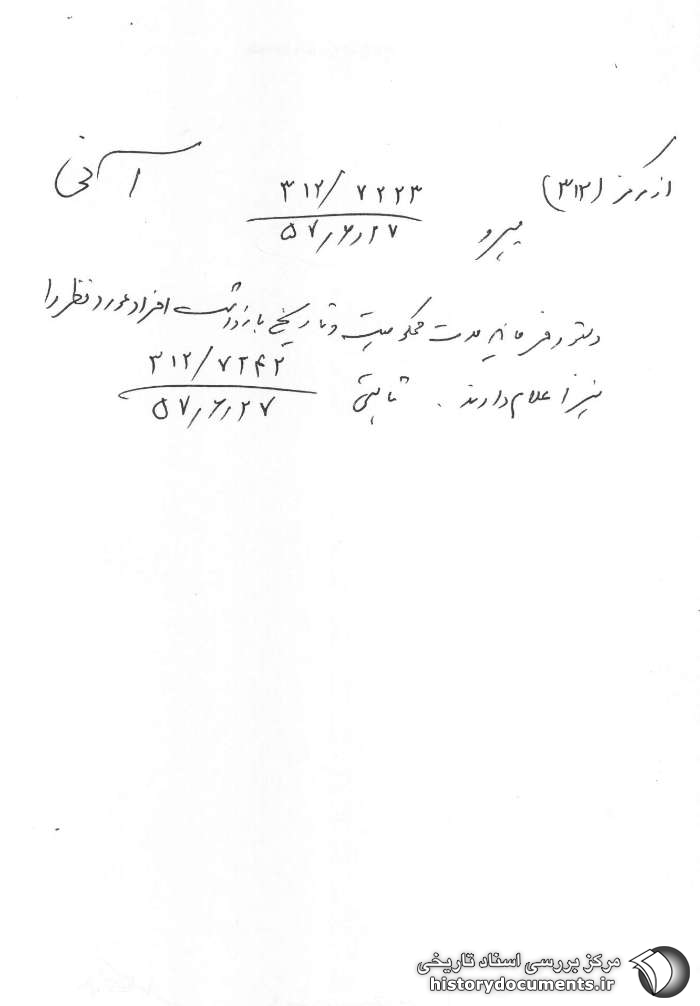 از مرکز (۳۱۲) ۳۱۲/ ۷۲۲۳ آنی
پیرو ۵۷٫۶٫۲۷
دستور فرمائید مدت محکومیت و تاریخ بازداشت افراد مورد نظر را
۳۱۲/ ۷۲۴۲
نیز اعلام دارند . ثابتی ۵۷٫۶٫۲۷
مرکز بررسی اسناد تاریخی
historydocuments.ir